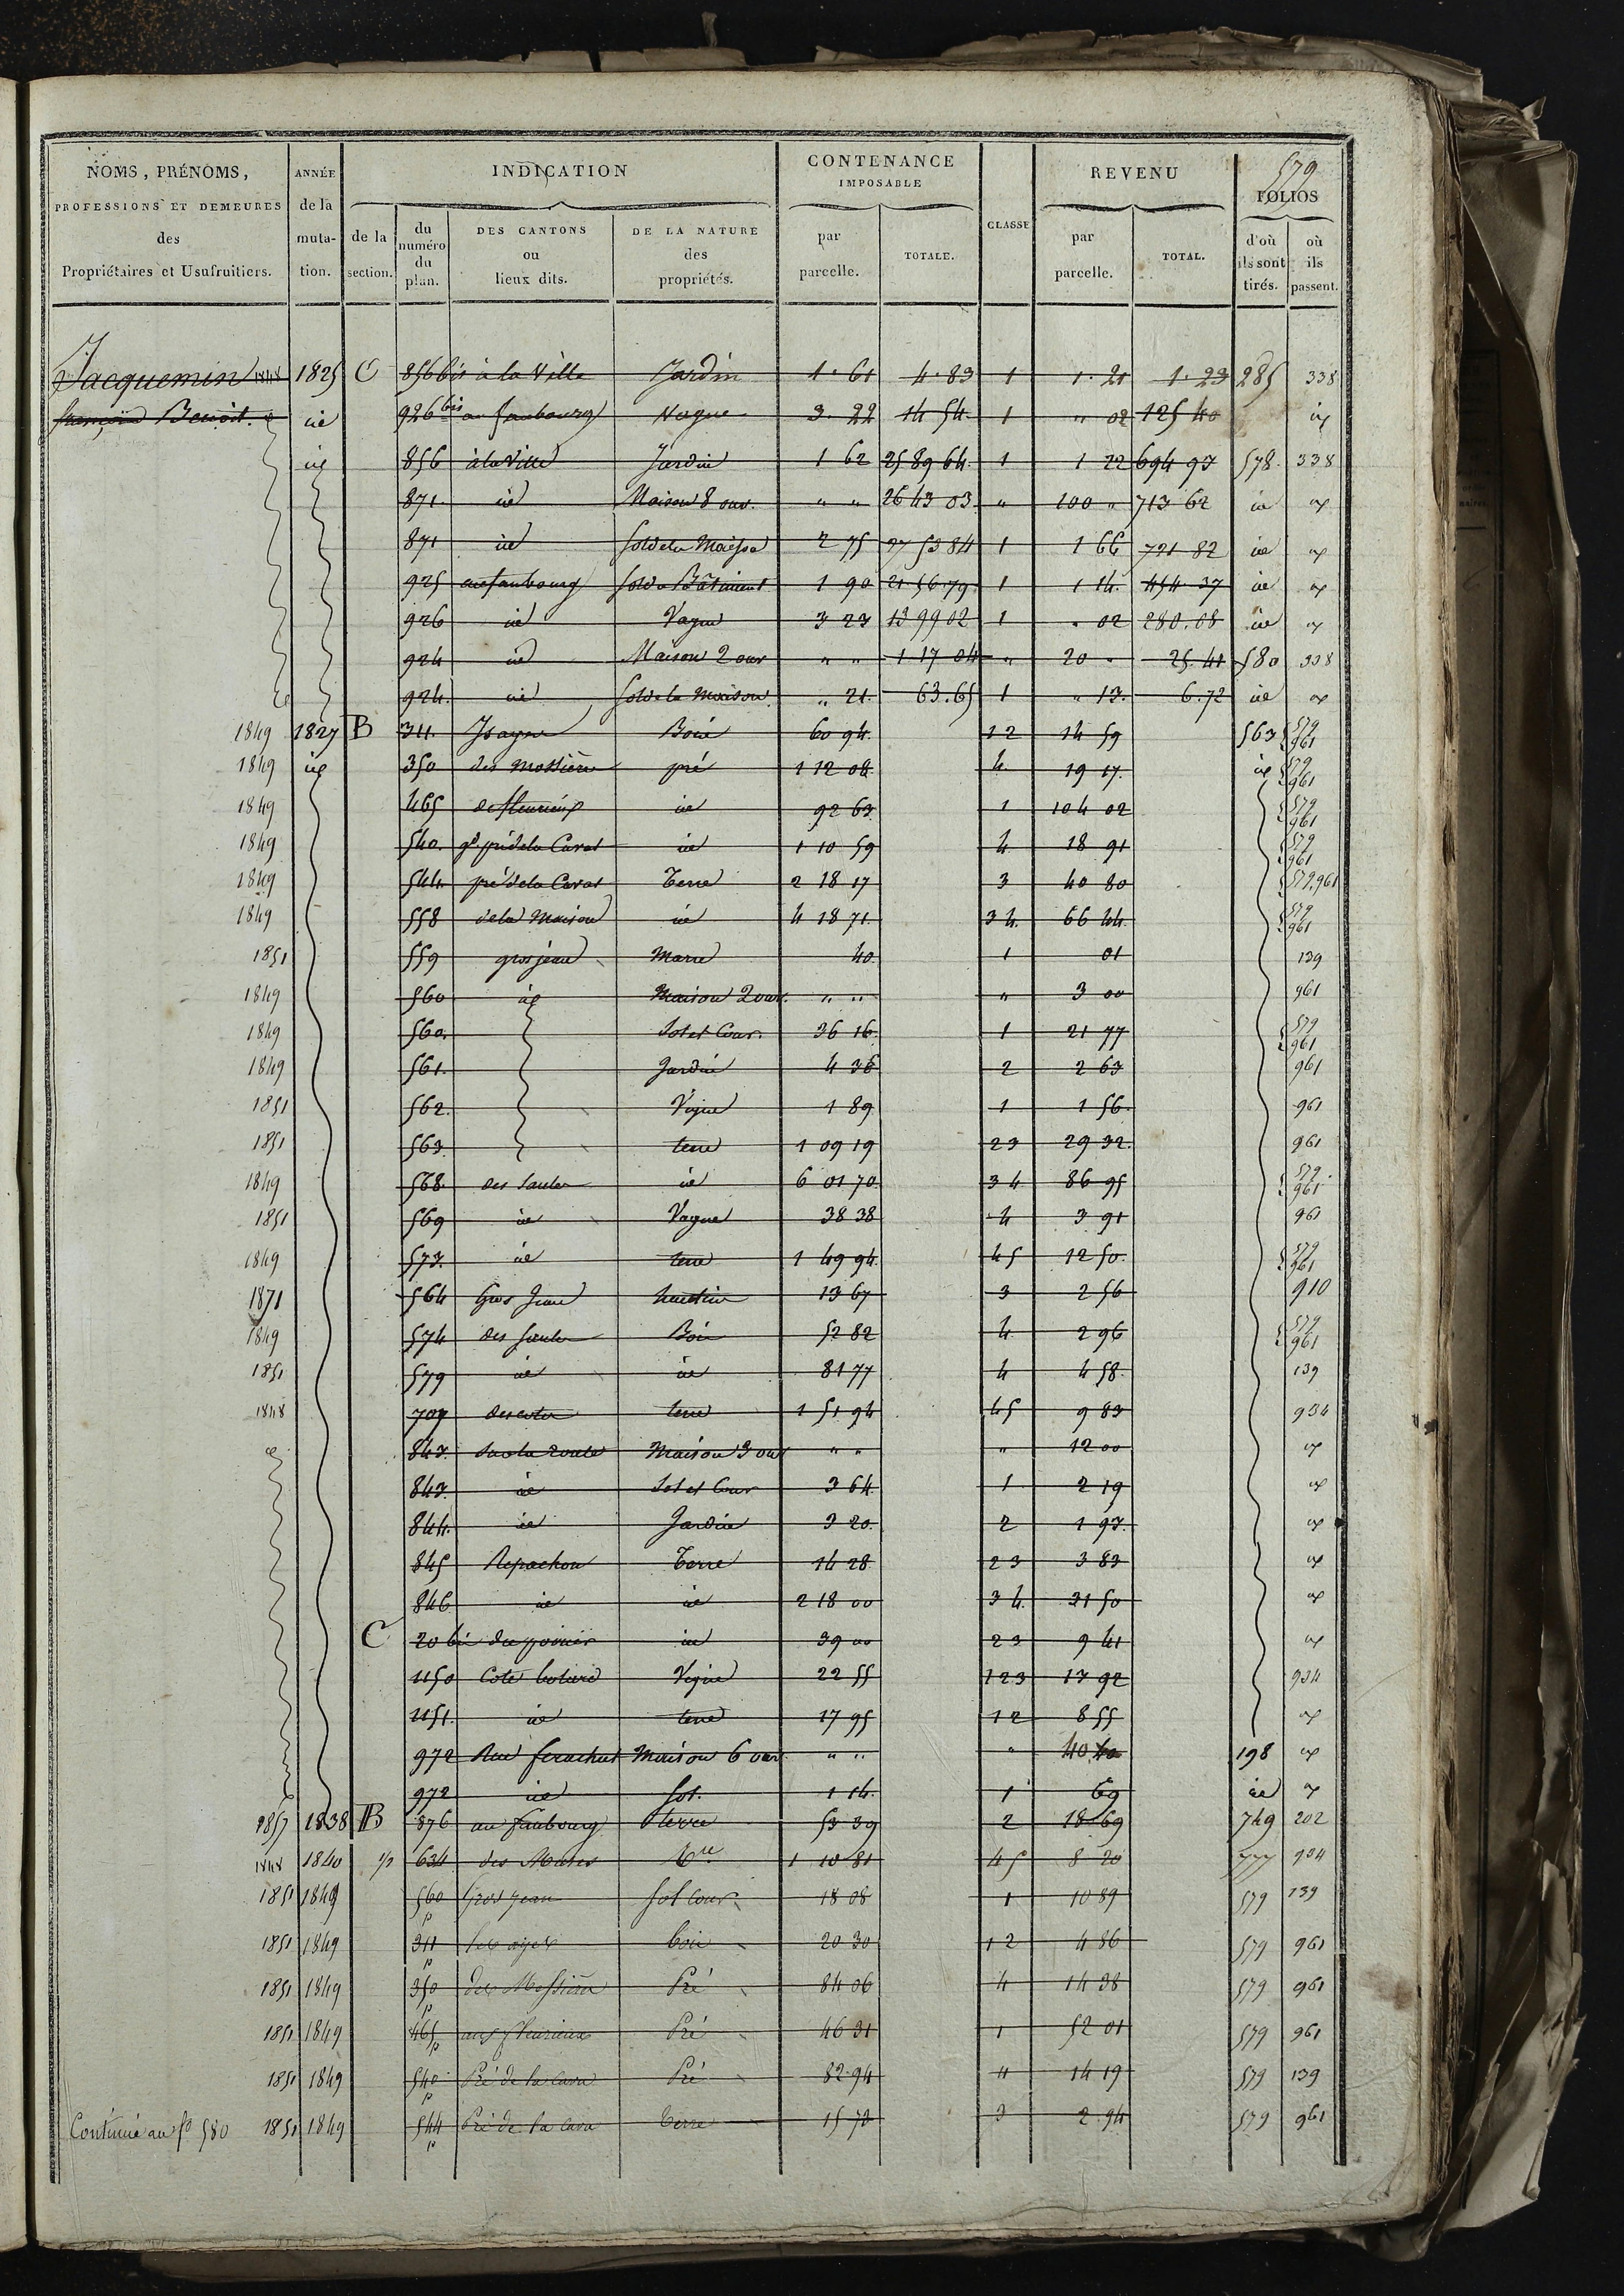 579
NOMS, PRÉNOMS, PROFESSIONS ET DEMEURES des Propriétaires et Usufruitiers.
ANNÉE de la muta-tion.
INDICATION
de la section.
du numéro du plan.
DES CANTONS ou lieux dits.
DE LA NATURE des propriétés.
CONTENANCE IMPOSABLE
par parcelle.
TOTALE.
CLASSE
REVENU
par parcelle.
TOTAL.
FOLIOS
d'où ils sont tirés.
où ils passent.
Jacquemin 1848 1825 C 856 bis à la Ville Jardin 1. 61 4. 83 1 1. 21 1. 23 285 338
françois Benoit. id 926 bis au faubourg Vague 3. 22 14 54 1 " 02 125 40 id
id 856 à la Ville Jardin 1 62 25 89 64 1 1 22 694 97 578 338
871 id Maison 8 ouv. " " 26 43 03 " 100 " 713 62 id id
871 id Sol de la Maison 2 75 27 53 84 1 1 66 721 82 id id
925 au faubourg Sol du Bâtiment 1 90 21 56 79 1 1 14 454 37 id id
926 id Vague 3 23 13 99 02 1 " 02 280.08 id id
924 id Maison 2 ouv " " 1 17 04 " 20 " 25.41 580 338
924 id Sol de la Maison " 21 63.65 1 " 13 6.72 id id
1849 1827 B 311 Bois 60 94 12 14 59 563 579 961
1849 id 350 pré 1 12 08 4 19 17 id 579 961
1849 465 id 92 63 1 104 02 579 961
1849 540 gd pré de la Carat id 1 10 59 4 18 91 579 961
1849 544 pré de la Carat Terre 2 18 17 3 40 80 579.961
1849 558 de la Maison id 4 18 71 34 66 44 579 961
1851 559 gros jean Marre 40 1 01 139
1849 560 id Maison 2 ouv. " " " 3 00 961
1849 560 Sol et Cour 36 16 1 21 77 579 961
1849 561 Jardin 4 36 2 2 63 961
1851 562 Vigne 1 89 1 1 56 961
1851 563 terre 1 09 19 23 29 32 961
1849 568 des Saules id 6 01 70 34 86 95 579 961
1851 569 id Vague 38 38 4 3 91 961
1849 573 id terre 1 49 94 45 12 50 579 961
1871 564 Gros Jean 13 67 3 2 56 910
1849 574 des Saules Bois 52 82 4 2 96 579 961
1851 579 id id 81 77 4 4 58 139
1848 707 terre 1 51 94 45 9 83 934
id 843 sur la route Maison 3 ouv " " " 12 00 id
843 id Sol et Cour 3 64 1 2 19 id
844 id Jardin 3 20 2 1 97 id
845 Repachon Terre 14 28 23 3 83 id
846 id id 2 18 00 34 31 50 id
C 20 bis du poirier id 39 00 23 9 41 id
1150 Cote Vigne 22 55 123 17 92 934
1151 id terre 17 95 12 8 55 id
972 Rue Maison 6 ouv " " " 40 198 id
972 id Sol 1 14 1 69 id id
1857 1838 B 876 au faubourg terre 53 39 2 18 69 749 202
1848 1840 634 des Mares 1 10 81 45 8 20 777 934
1851 1849 560 p Gros jean Sol cour 18 08 1 10 89 579 139
1851 1849 311 p bois 20 30 12 4 86 579 961
1851 1849 350 p Pré 84 06 4 14 38 579 961
1851 1849 465 p aux fleurieux Pré 46 31 1 52 01 579 961
1851 1849 540 p Pré de la cara Pré 82 94 4 14 19 579 139
Continué au fo 580 1851 1849 544 p Pré de la cara Terre 15 73 3 2 94 579 961